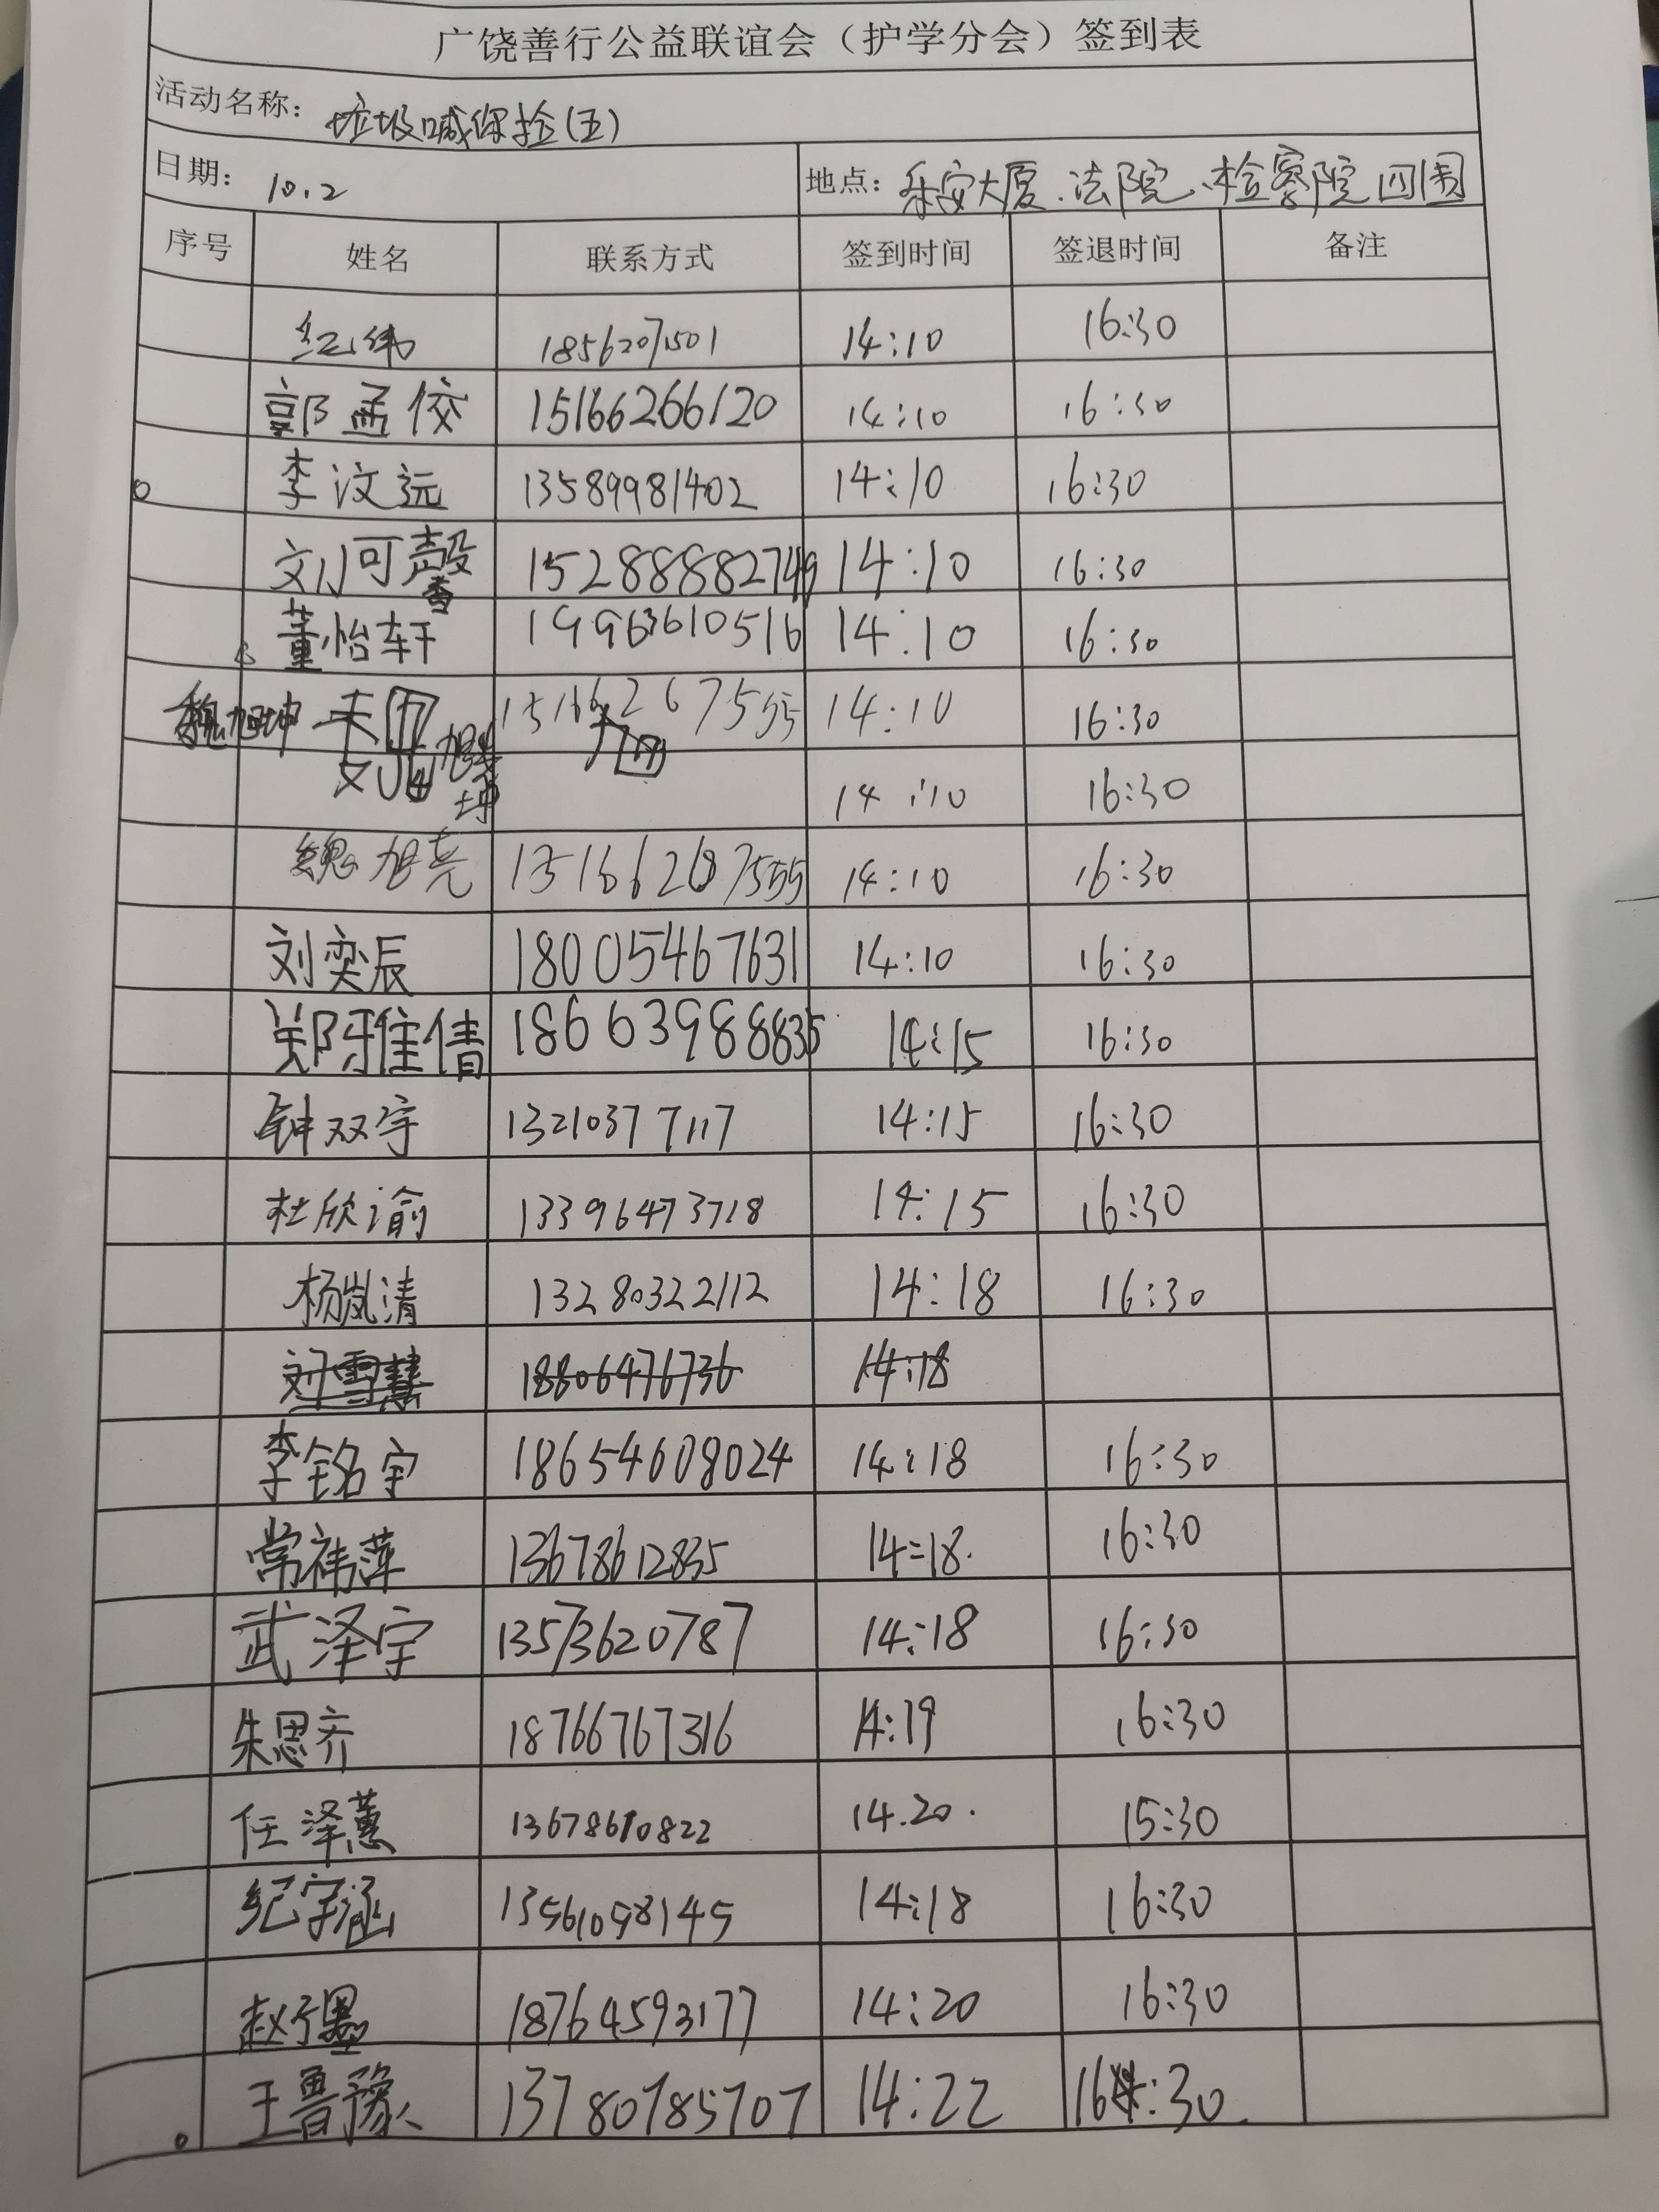 广饶善行公益联谊会（护学分会）签到表
活动名称： 垃圾喊保捡(五)
日期： 10.2 地点：乐安大厦、法院、检察院四围
序号 姓名 联系方式 签到时间 签退时间 备注
红伟 18562071501 14:10 16:30
郭孟佼 15166266120 14:10 16:30
李汶远 13589981402 14:10 16:30
刘可馨 15288882749 14:10 16:30
董怡轩 19963610516 14:10 16:30
魏旭坤 15166267555 14:10 16:30
14:10 16:30
魏旭尧 15166267555 14:10 16:30
刘奕辰 18005467631 14:10 16:30
郑雅倩 18663988835 14:15 16:30
钟双宇 13210377117 14:15 16:30
杜欣谕 13396473718 14:15 16:30
杨岚清 13280322112 14:18 16:30
刘雪慧 18806476736 14:18
李铭宇 18654608024 14:18 16:30
常祎萍 13678612835 14:18. 16:30
武泽宇 13573620787 14:18 16:30
朱思齐 18766767316 14:19 16:30
任泽蕙 13678610822 14.20. 15:30
纪宇涵 13561098145 14:18 16:30
赵子墨 18764593177 14:20 16:30
王鲁豫 13780785707 14:22 16:30